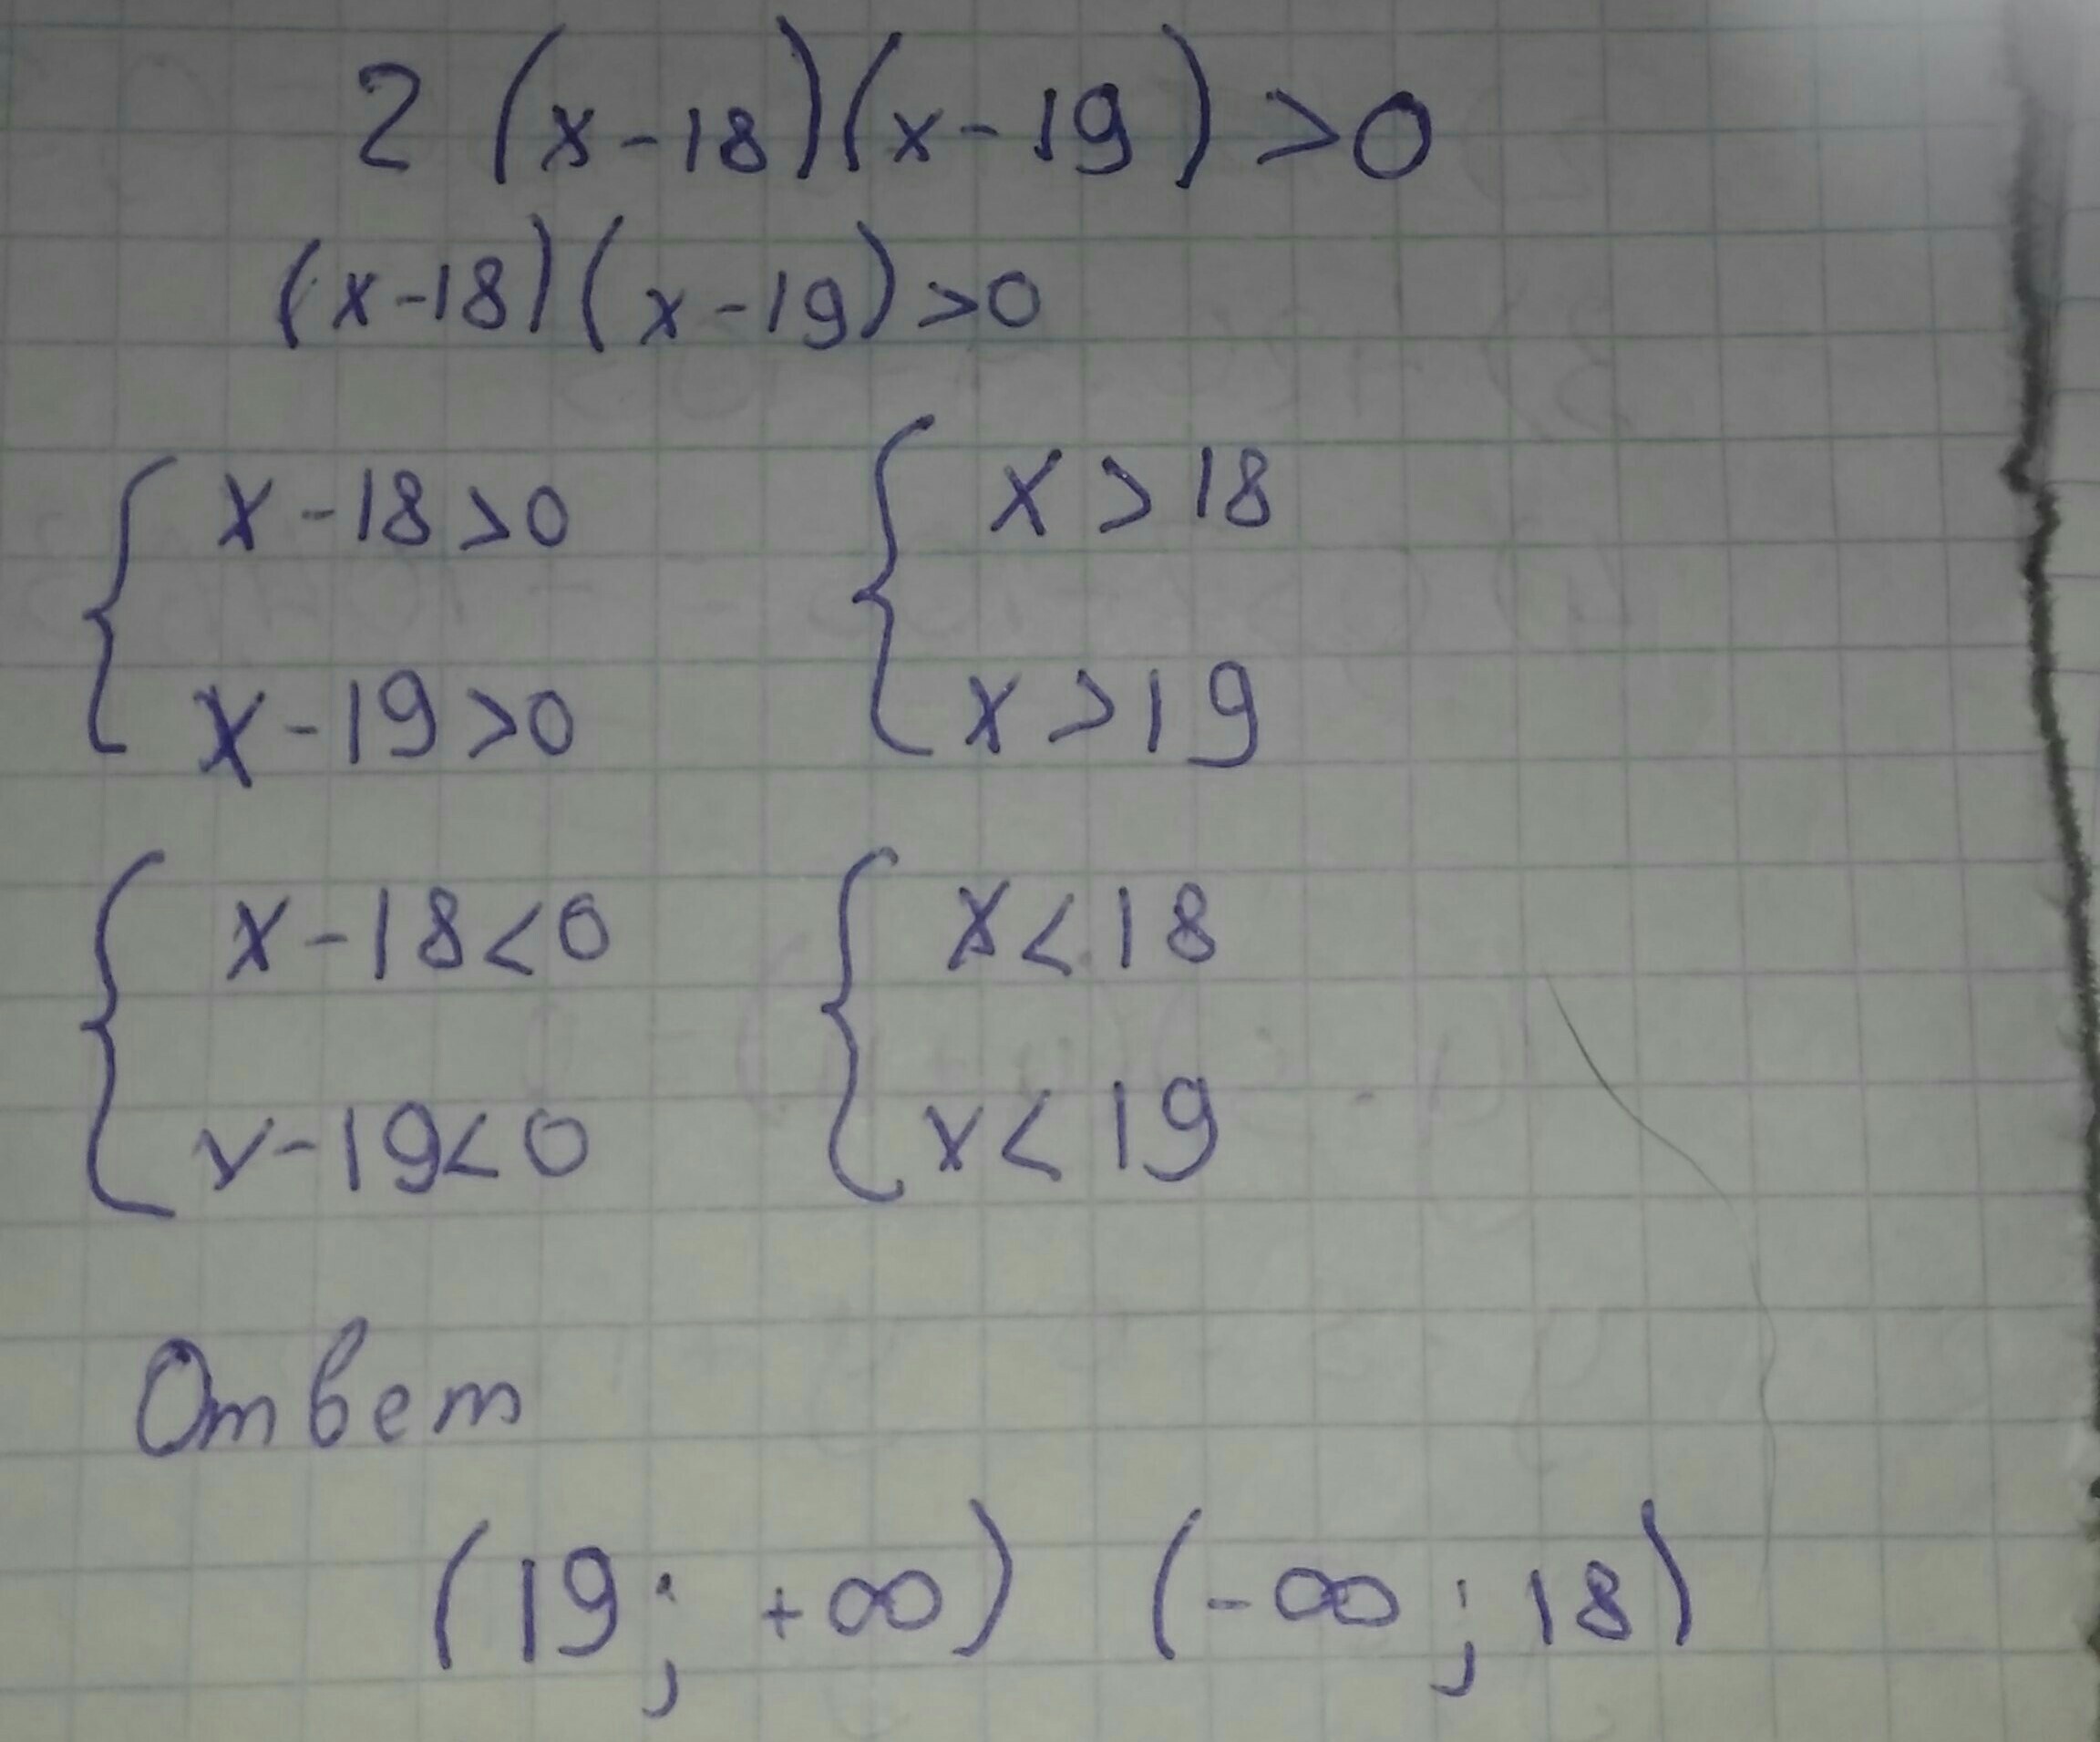 2 (x-18)(x-19) >0
(x-18)(x-19)>0
{ x-18>0 { x>18
x-19>0 x>19
{ x-18<0 { x<18
x-19<0 x<19
Ответ
(19; +∞) (-∞; 18)